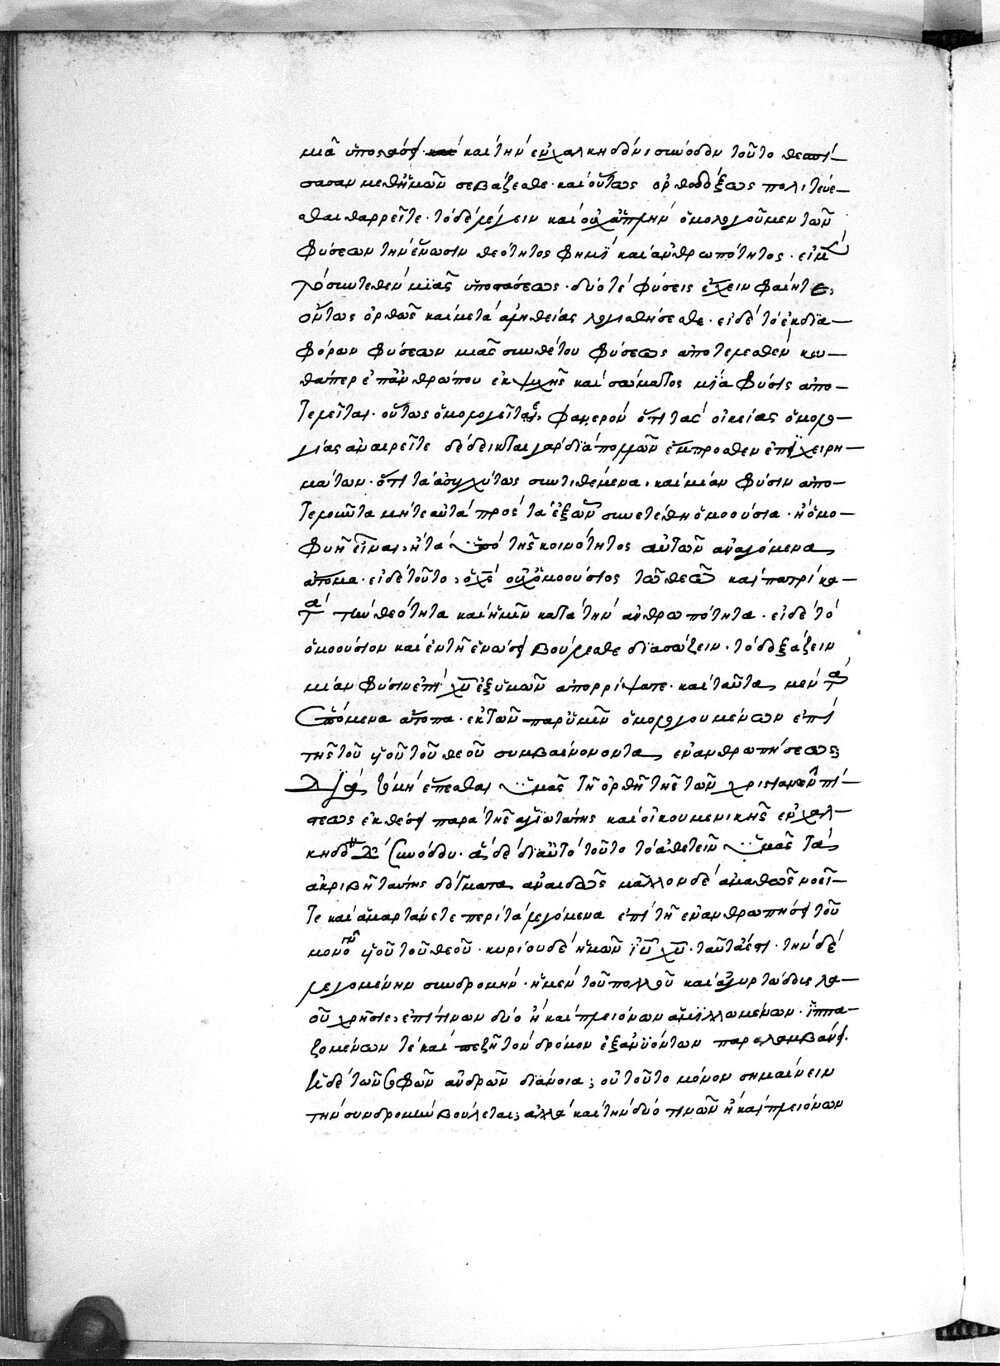 μιᾶ ὑποστάσει· καὶ τὴν ἐν χαλκηδόνι σύνοδον τοῦτο θεσπί-
σασαν μεθ' ἡμῶν σεβάζεσθε· καὶ οὕτως ὀρθοδόξως πολιτεύε-
σθαι θαρρεῖτε· τὸ δὲ λέγειν καὶ οὐχ ἁπλὴν ὁμολογοῦμεν τῶν
φύσεων τὴν ἕνωσιν θεότητος φημὶ καὶ ἀνθρωπότητος· εἰ μὲν
συντεθὲν μιᾶς ὑποστάσεως· δύο τὲ φύσεις ἔχειν φαίητε,
οὕτως ὀρθῶς καὶ μετὰ ἀληθείας λογισθήσεσθε· εἰ δὲ τὸ ἐκ δια-
φόρων φύσεων μιᾶς συνθέτου φύσεως ἀποτελεσθὲν κα-
θάπερ ἐπ' ἀνθρώπου ἐκ ψυχῆς καὶ σώματος μία φύσις ἀπο-
τελεῖται· οὕτως ὁμολογεῖται, φανερὸν ὅτι τὰς οἰκείας ὁμολο-
γίας ἀναιρεῖτε δέδεικται γὰρ διὰ πολλῶν ἔμπροσθεν ἐπιχειρη-
μάτων· ὅτι τὰ ἀσυγχύτως συντιθέμενα, καὶ μίαν φύσιν ἀπο-
τελοῦντα μήτε αὐτὰ πρὸς τὰ ἐξ ὧν συνετέθη ὁμοούσια· ἢ ὁμο-
φυῆ εἶναι, ἢ τὰ ὑπὸ τῆς κοινότητος αὐτῶν ἀναγόμενα
ἄτομα· εἰ δὲ τοῦτο, ὁ χς οὐχ ὁμοούσιος τῶ θεῶ καὶ πατρὶ κα-
τὰ τὴν θεότητα καὶ ἡμῖν κατὰ τὴν ἀνθρωπότητα· εἰ δὲ τὸ
ὁμοούσιον καὶ ἐν τῆ ἑνώσει βούλεσθε διασώζειν· τὸ δοξάζειν
μίαν φύσιν ἐπὶ χυ ἐξ ὑμῶν ἀπορρίψατε· καὶ ταῦτα μὲν τὰ
ἑπόμενα ἄτοπα· ἐκ τῶν παρ' ὑμῖν ὁμολογουμένων ἐπὶ
τῆς τοῦ υἱοῦ τοῦ θεοῦ συμβαίνοντα ἐνανθρωπήσεως,
διὰ τὸ μὴ ἕπεσθαι ὑμᾶς τῆ ὀρθῆ τῆς τῶν χριστιανῶν πί-
στεως ἐκθέσει παρὰ τῆς ἁγιωτάτης καὶ οἰκουμενικῆς ἐν χαλ-
κηδόνι συνόδου· ἃ δὲ διὰ αὐτὸ τοῦτο τὸ ἀθετεῖν ὑμᾶς τὰ
ἀκριβῆ ταύτης δόγματα ἀναιδῶς μᾶλλον δὲ ἀμαθῶς νοεῖ-
τε καὶ ἁμαρτάνετε περὶ τὰ λεγόμενα ἐπὶ τῆ ἐνανθρωπήσει τοῦ
μονογενοῦς υἱοῦ τοῦ θεοῦ· κυρίου δὲ ἡμῶν ιυ χυ· ταῦτα ἐστί· τὴν δὲ
λεγομένην συνδρομὴν· ἡ μὲν τοῦ πολλοῦ καὶ ἀγυρτώδους λα-
οῦ χρῆσις, ἐπὶ τινων δύο ἢ καὶ πλειόνων ἁμιλλωμένων· ἱππα-
ζομένων τὲ καὶ πεζῆ τὸν δρόμον ἐξανυόντων παραλαμβάνει·
ἡ δὲ τῶν σοφῶν ἀνδρῶν διάνοια, οὐ τοῦτο μόνον σημαίνειν
τὴν συνδρομὴν βούλεται, ἀλλὰ καὶ τὴν δύο τινῶν ἢ καὶ πλειόνων